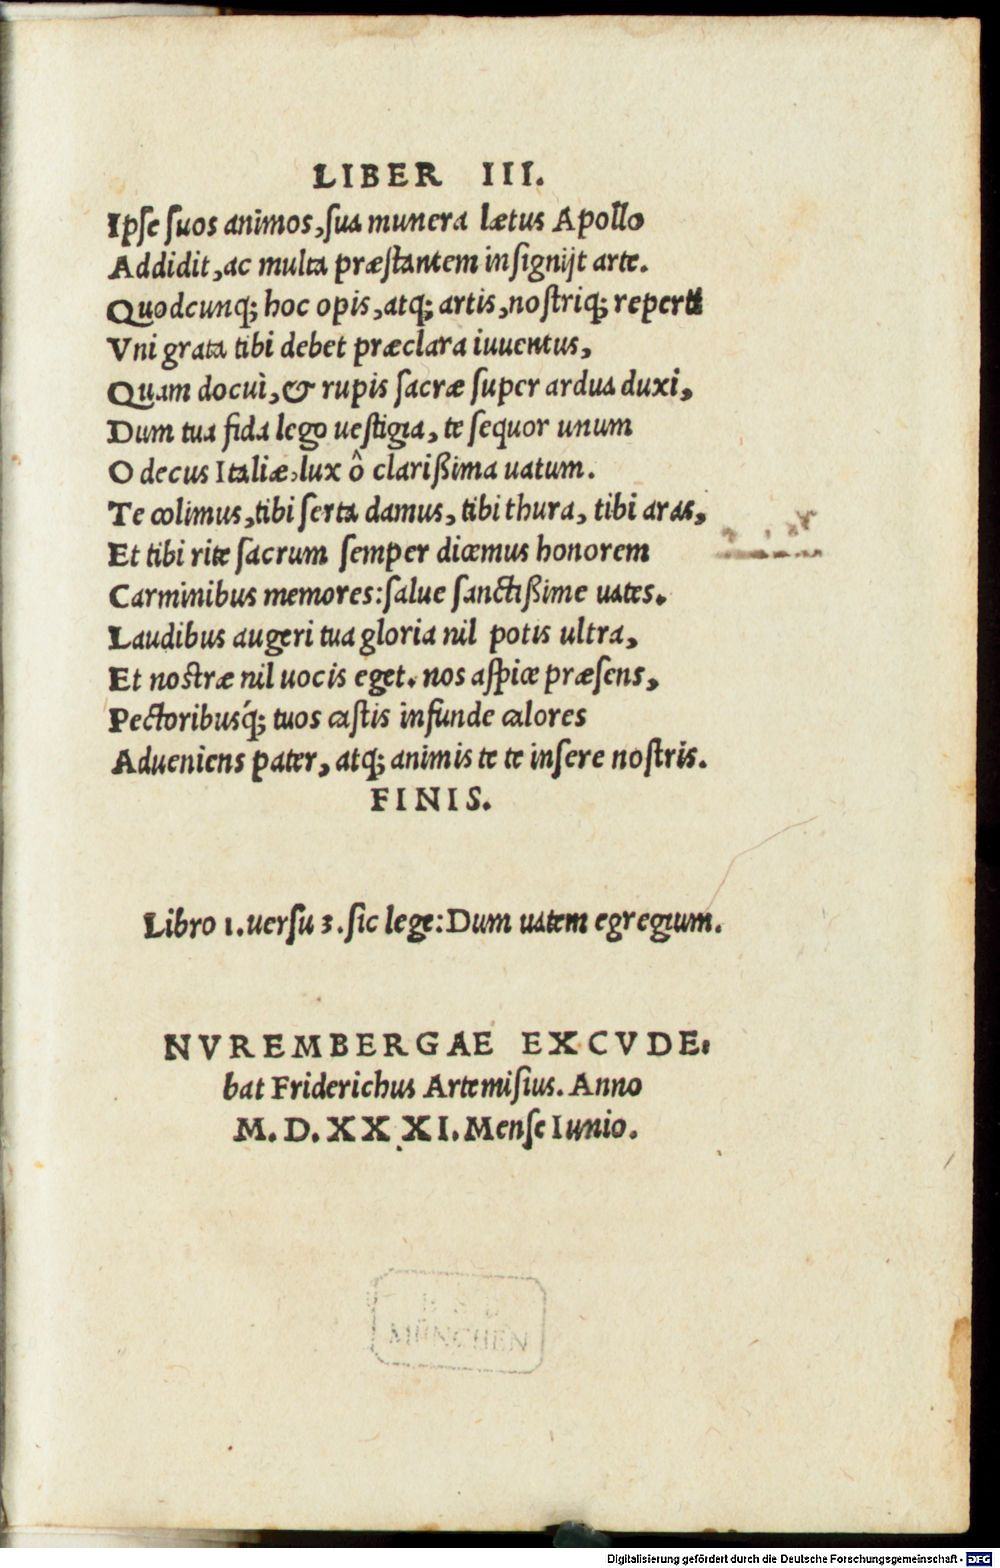 LIBER III.
Ipse suos animos, sua munera lætus Apollo
Addidit, ac multa præstantem insignijt arte.
Quodcunq; hoc opis, atq; artis, nostriq; reperti
Vni grata tibi debet præclara iuuentus,
Quam docui, & rupis sacræ super ardua duxi,
Dum tua fida lego uestigia, te sequor unum
O decus Italiæ, lux ô clarißima uatum.
Te colimus, tibi serta damus, tibi thura, tibi aras,
Et tibi rite sacrum semper dicemus honorem
Carminibus memores: salue sanctißime uates.
Laudibus augeri tua gloria nil potis ultra,
Et nostræ nil uocis eget. nos aspice præsens,
Pectoribusq́; tuos castis infunde calores
Adueniens pater, atq; animis te te insere nostris.
FINIS.
Libro 1. uersu 3. sic lege: Dum uatem egregium.
NVREMBERGAE EXCVDE.
bat Friderichus Artemisius. Anno
M. D. XXXI. Mense Iunio.
MÜNCHEN
Digitalisierung gefördert durch die Deutsche Forschungsgemeinschaft - DFG